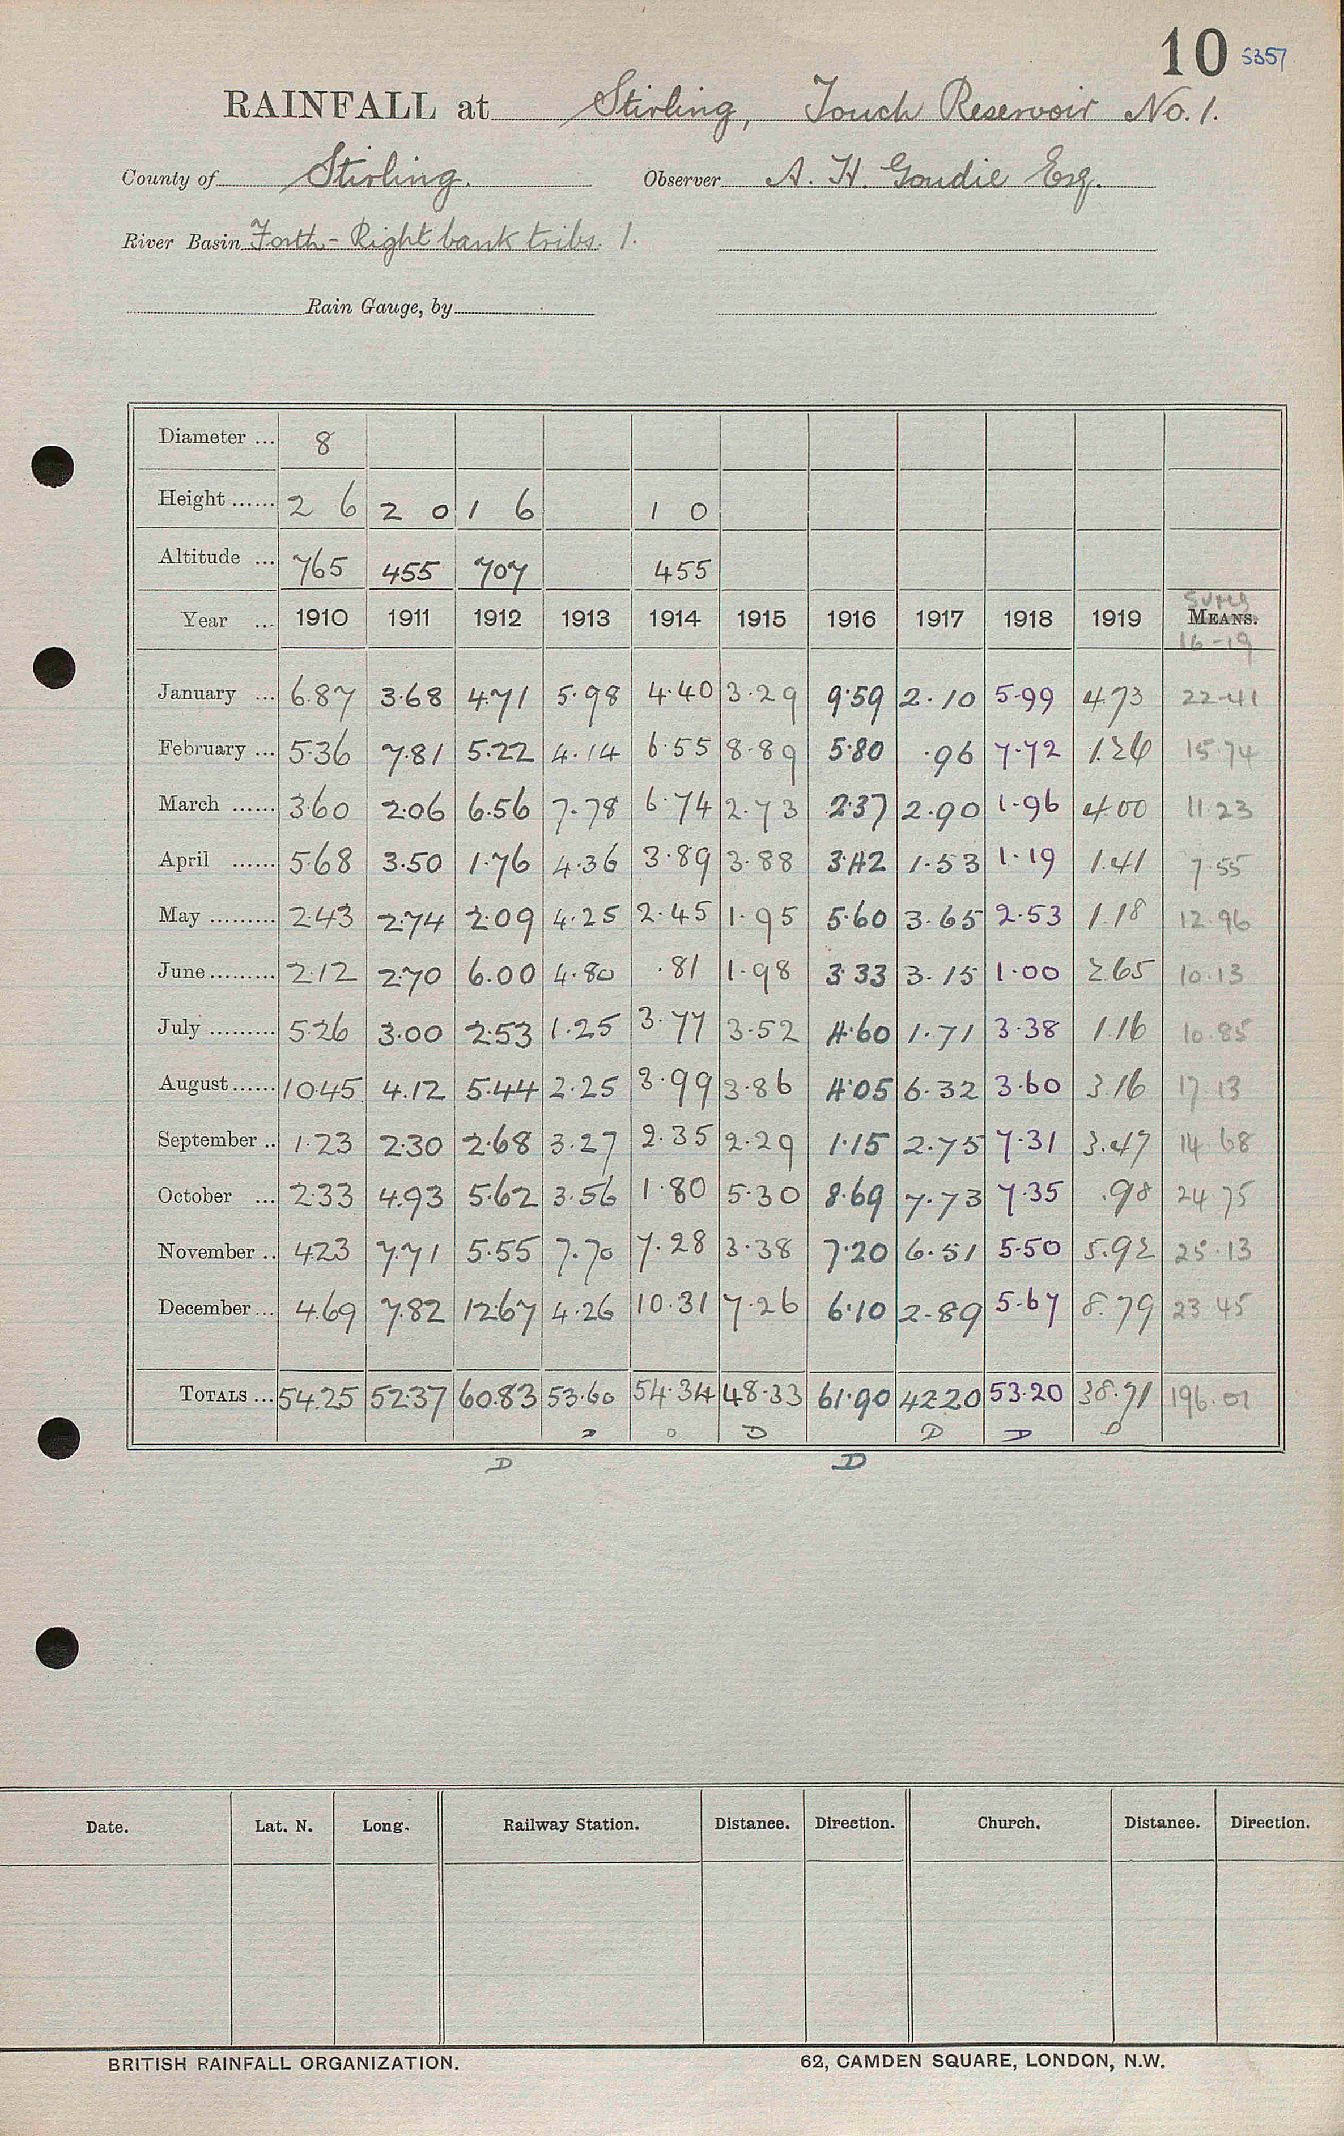 10 5357
RAINFALL at Stirling, Touch Reservoir No. 1.
County of Stirling. Observer A. H. Goudie Esq.
River Basin Forth - Right bank tribs. 1.
Rain Gauge, by
Diameter ... 8
Height ...... 2 6 2 0 1 6 1 0
Altitude ... 765 455 707 455
Year ... 1910 1911 1912 1913 1914 1915 1916 1917 1918 1919 Sums MEANS. 16-19
January ... 6.87 3.68 4.71 5.98 4.40 3.29 9.59 2.10 5.99 4.73 22.41
February ... 5.36 7.81 5.22 4.14 6.55 8.89 5.80 .96 7.72 1.26 15.74
March ...... 3.60 2.06 6.56 7.78 6.74 2.73 2.37 2.90 1.96 4.00 11.23
April ...... 5.68 3.50 1.76 4.36 3.89 3.88 3.42 1.53 1.19 1.41 7.55
May ......... 2.43 2.74 2.09 4.25 2.45 1.95 5.60 3.65 2.53 1.18 12.96
June ......... 2.12 2.70 6.00 4.80 .81 1.98 3.33 3.15 1.00 2.65 10.13
July ......... 5.26 3.00 2.53 1.25 3.77 3.52 4.60 1.71 3.38 1.16 10.85
August ...... 10.45 4.12 5.44 2.25 3.99 3.86 4.05 6.32 3.60 3.16 17.13
September .. 1.23 2.30 2.68 3.27 2.35 2.29 1.15 2.75 7.31 3.47 14.68
October ... 2.33 4.93 5.62 3.56 1.80 5.30 8.69 7.73 7.35 .98 24.75
November .. 4.23 7.71 5.55 7.70 7.28 3.38 7.20 6.51 5.50 5.92 25.13
December ... 4.69 7.82 12.67 4.26 10.31 7.26 6.10 2.89 5.67 8.79 23.45
TOTALS ... 54.25 52.37 60.83 53.60 54.34 48.33 61.90 42.20 53.20 38.71 196.01
D D D D D D
D D
Date. Lat. N. Long. Railway Station. Distance. Direction. Church. Distance. Direction.
BRITISH RAINFALL ORGANIZATION. 62, CAMDEN SQUARE, LONDON, N.W.